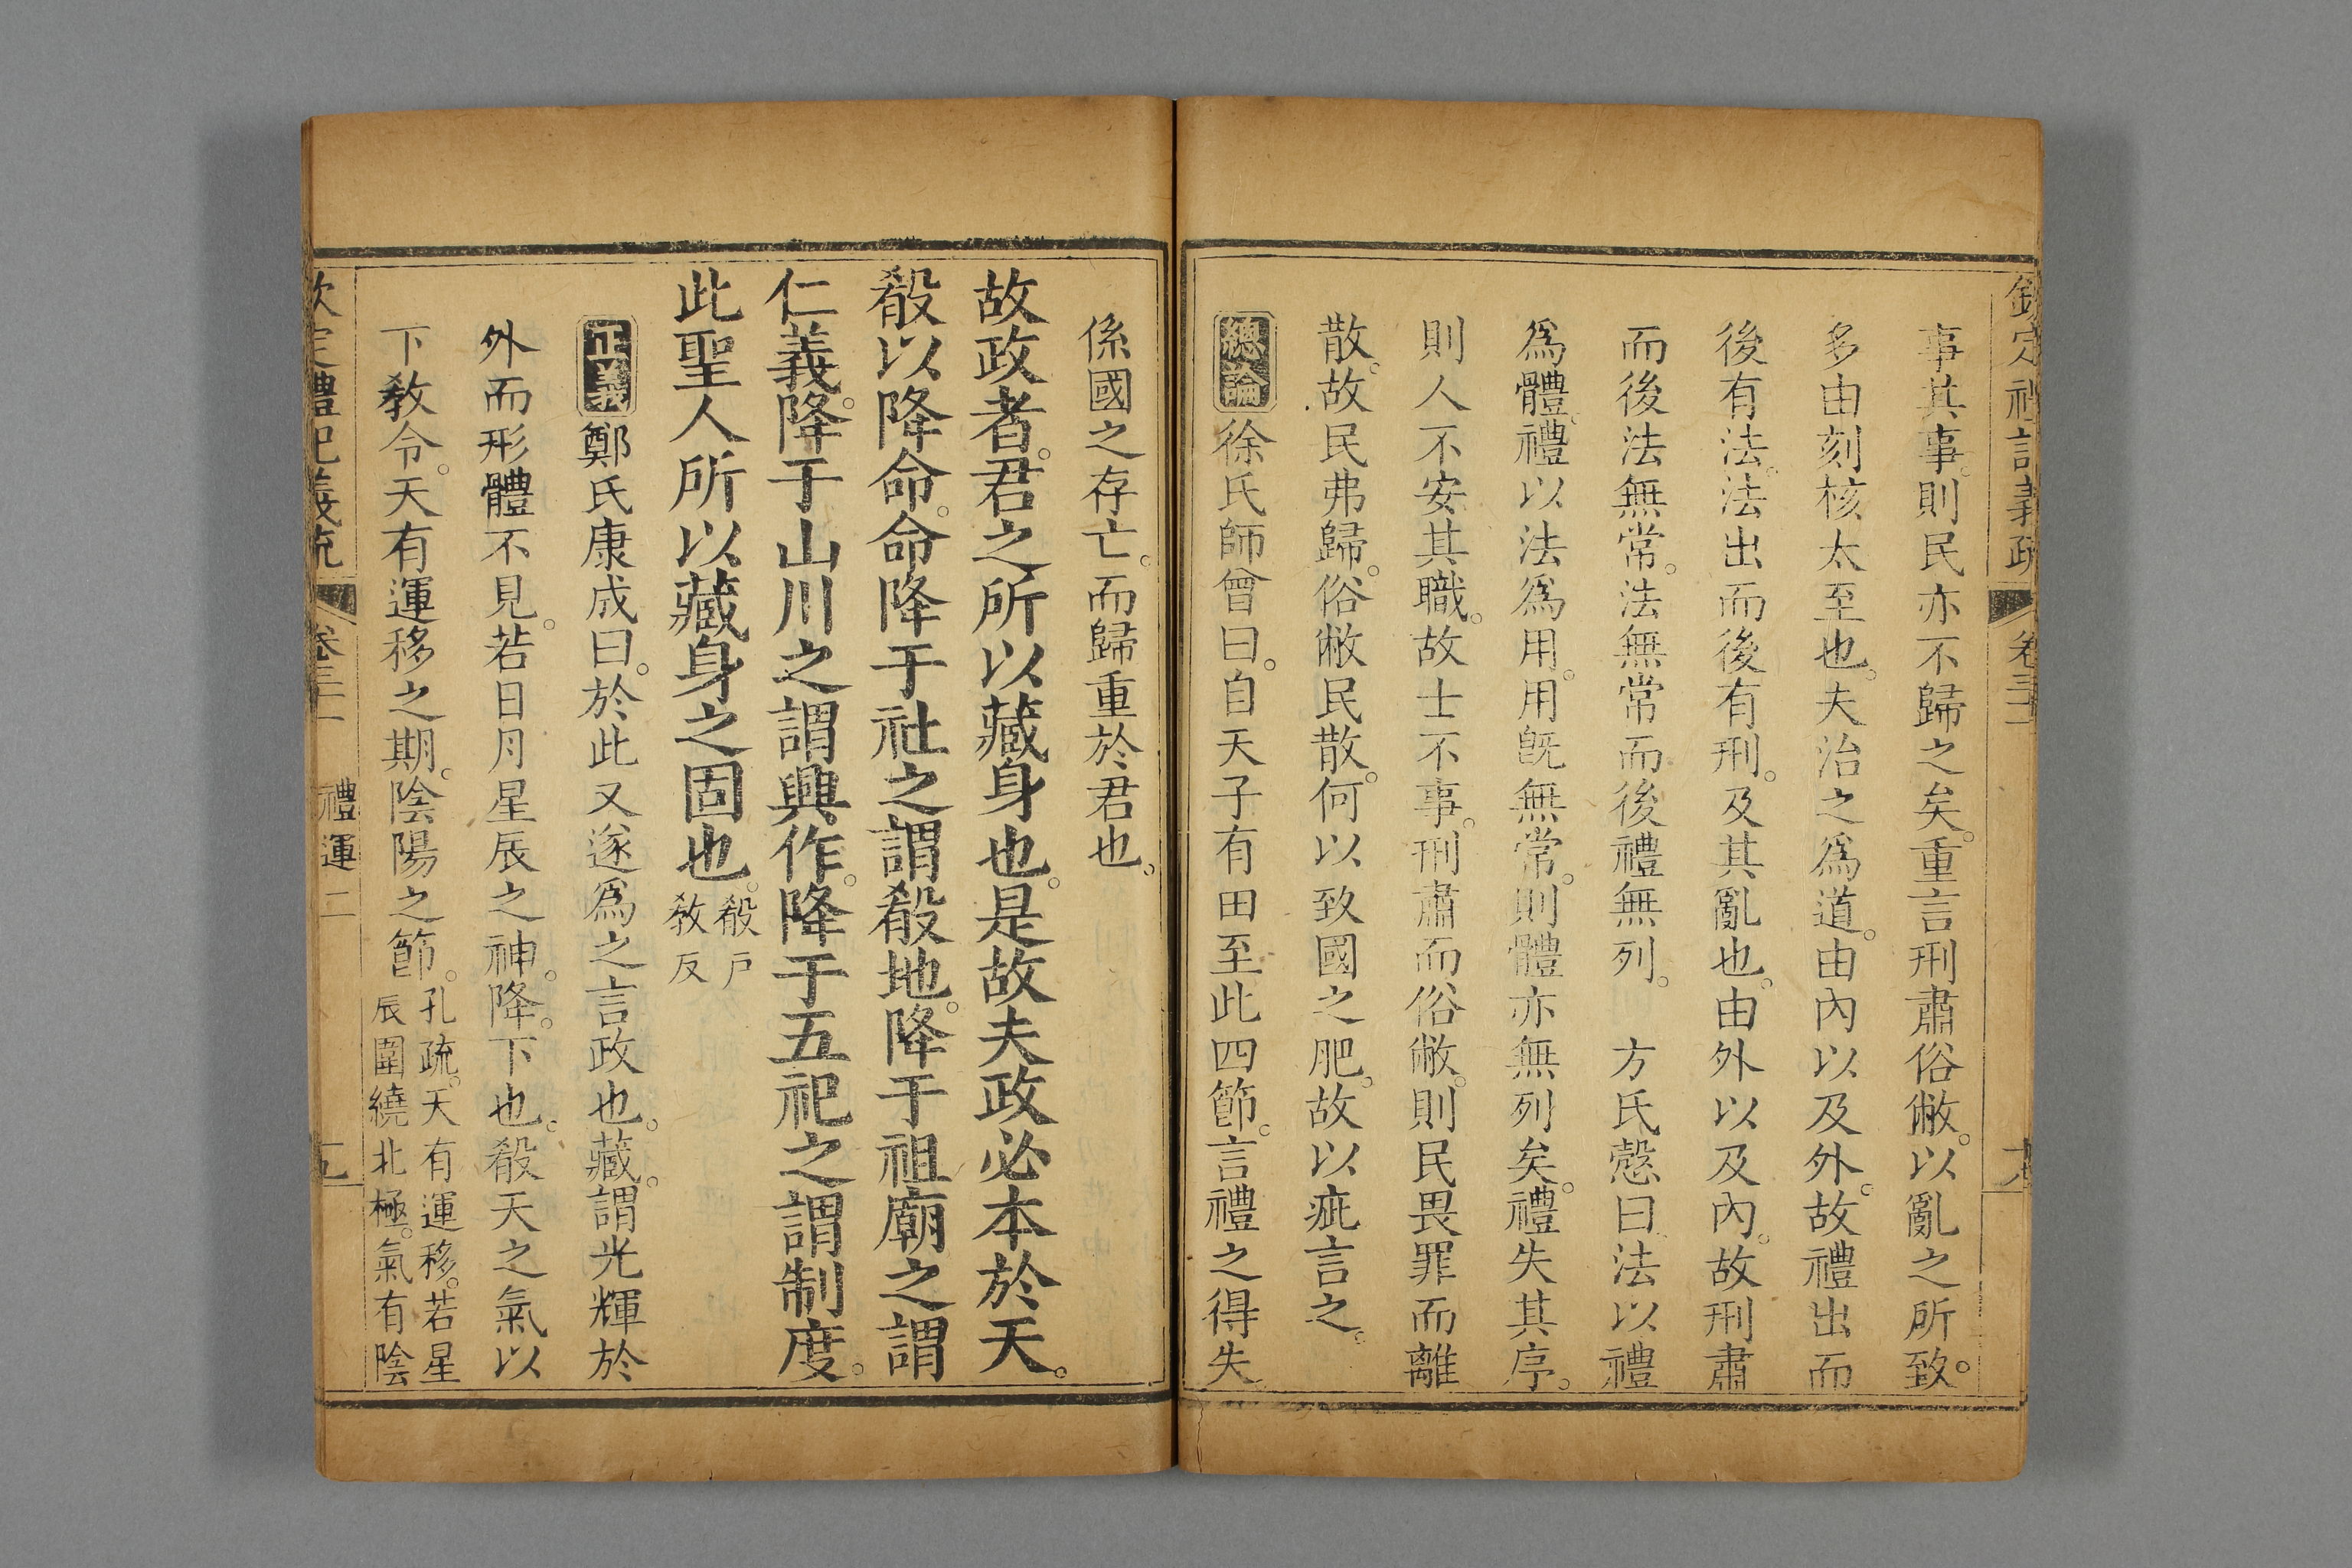 欽定禮記義疏 卷三十一
事其事。則民亦不歸之矣。重言刑肅俗敝。以亂之所致。
多由刻核太至也。夫治之爲道。由內以及外。故禮出而
後有法。法出而後有刑。及其亂也。由外以及內。故刑肅
而後法無常。法無常而後禮無列。 方氏慤曰。法以禮
爲體。禮以法爲用。用旣無常。則體亦無列矣。禮失其序。
則人不安其職。故士不事。刑肅而俗敝。則民畏罪而離
散。故民弗歸。俗敝民散。何以致國之肥。故以疵言之。
總論徐氏師曾曰。自天子有田至此四節。言禮之得失。
係國之存亡。而歸重於君也。
故政者。君之所以藏身也。是故夫政必本於天。
殽以降命。命降于社之謂殽地。降于祖廟之謂
仁義。降于山川之謂興作。降于五祀之謂制度。
此聖人所以藏身之固也。殽戶
敎反
正義鄭氏康成曰。於此又遂爲之言政也。藏。謂光輝於
外而形體不見。若日月星辰之神。降。下也。殽天之氣以
下敎令。天有運移之期。陰陽之節。孔疏。天有運移。若星
辰圍繞北極。氣有陰
欽定禮記義疏 卷三十一 禮運二